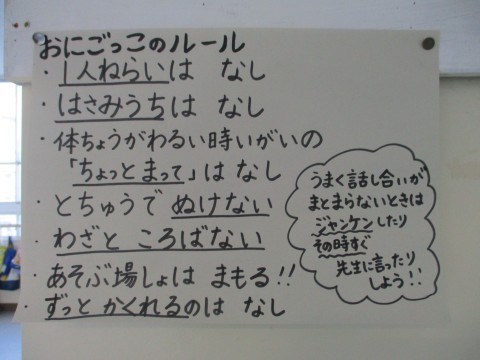 おにごっこのルール
・1人ねらいは なし
・はさみうちは なし
・体ちょうがわるい時いがいの
「ちょっとまって」はなし
・とちゅうで ぬけない
・わざと ころばない
・あそぶ場しょは まもる!!
・ずっと かくれるのは なし
うまく話し合いが
まとまらないときは
ジャンケンしたり
その時すぐ
先生に言ったり
しよう!!